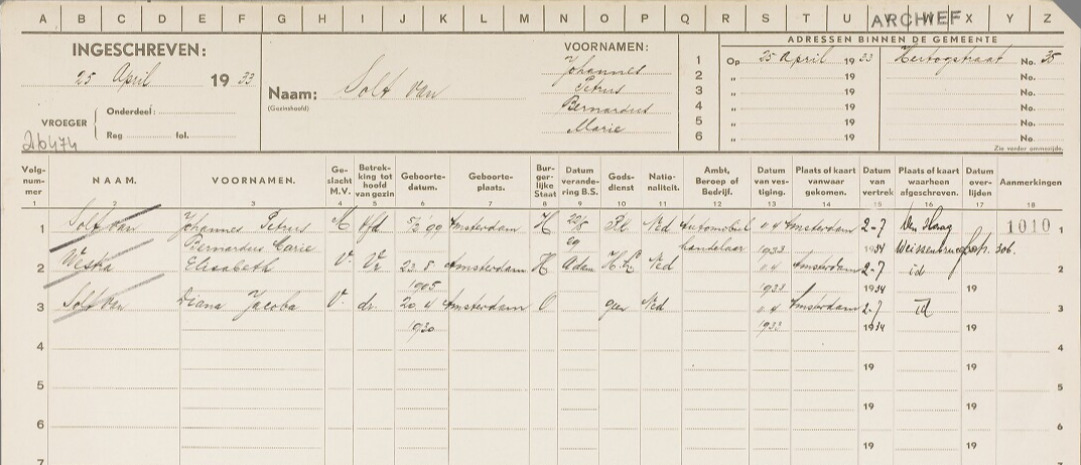 A B C D E F G H I J K L M N O P Q R S T U V W X Y Z
ARCHIEF
INGESCHREVEN:
25 April 1933
VROEGER
Onderdeel:
Reg fol.
26474
Naam: Solt van
(Gezinshoofd)
VOORNAMEN:
Johannes
Petrus
Bernardus
Marie
1 2 3 4 5 6
ADRESSEN BINNEN DE GEMEENTE
Op 25 April 1933 Hertogstraat No. 35
„ 19 No.
„ 19 No.
„ 19 No.
„ 19 No.
„ 19 No.
Zie verder ommezijde.
Volg-nummer NAAM. VOORNAMEN. Ge-slacht M.V. Betrek-king tot hoofd van gezin Geboorte-datum. Geboorte-plaats. Bur-ger-lijke Staat Datum verande-ring B.S. Gods-dienst Natio-naliteit. Ambt, Beroep of Bedrijf. Datum van ves-tiging. Plaats of kaart vanwaar gekomen. Datum van vertrek Plaats of kaart waarheen afgeschreven. Datum over-lijden Aanmerkingen
1 2 3 4 5 6 7 8 9 10 11 12 13 14 15 16 17 18
1 Solt van Johannes Petrus M Hfd '99 Amsterdam H Ned Automobiel Amsterdam 2-7 Den Haag 1010 1
Bernardus Marie 29 handelaar 1933 1934
2 Elisabeth V. 23. 5 Amsterdam H Adam Ned Amsterdam 2-7 id 2
1905 1933 1934 19
3 Solt van Diana Jacoba V. dr. 20. 4 Amsterdam O geen Ned Amsterdam 2-7 id 3
1930 1933 1934 19
4 19 19 4
5 19 19 5
6 19 19 6
7 19 19